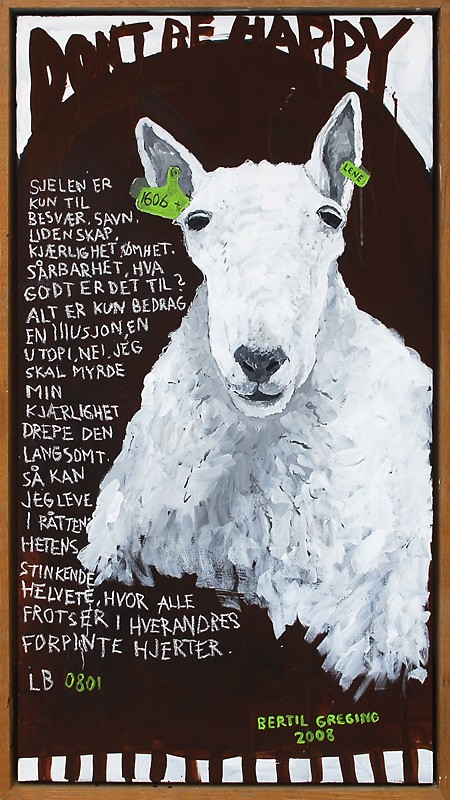 DON'T BE HAPPY
1606
LENE
SJELEN ER
KUN TIL
BESVÆR. SAVN.
LIDENSKAP,
KJÆRLIGHET, ØMHET.
SÅRBARHET, HVA
GODT ER DET TIL?
ALT ER KUN BEDRAG
EN ILLUSJON, EN
UTOPI, NEI. JEG
SKAL MYRDE
MIN
KJÆRLIGHET
DREPE DEN
LANGSOMT.
SÅ KAN
JEG LEVE
I RÅTTEN
HETENS
STINKENDE
HELVETE, HVOR ALLE
FROTSER I HVERANDRES
FORPINTE HJERTER.
LB 0801
BERTIL GREGING
2008